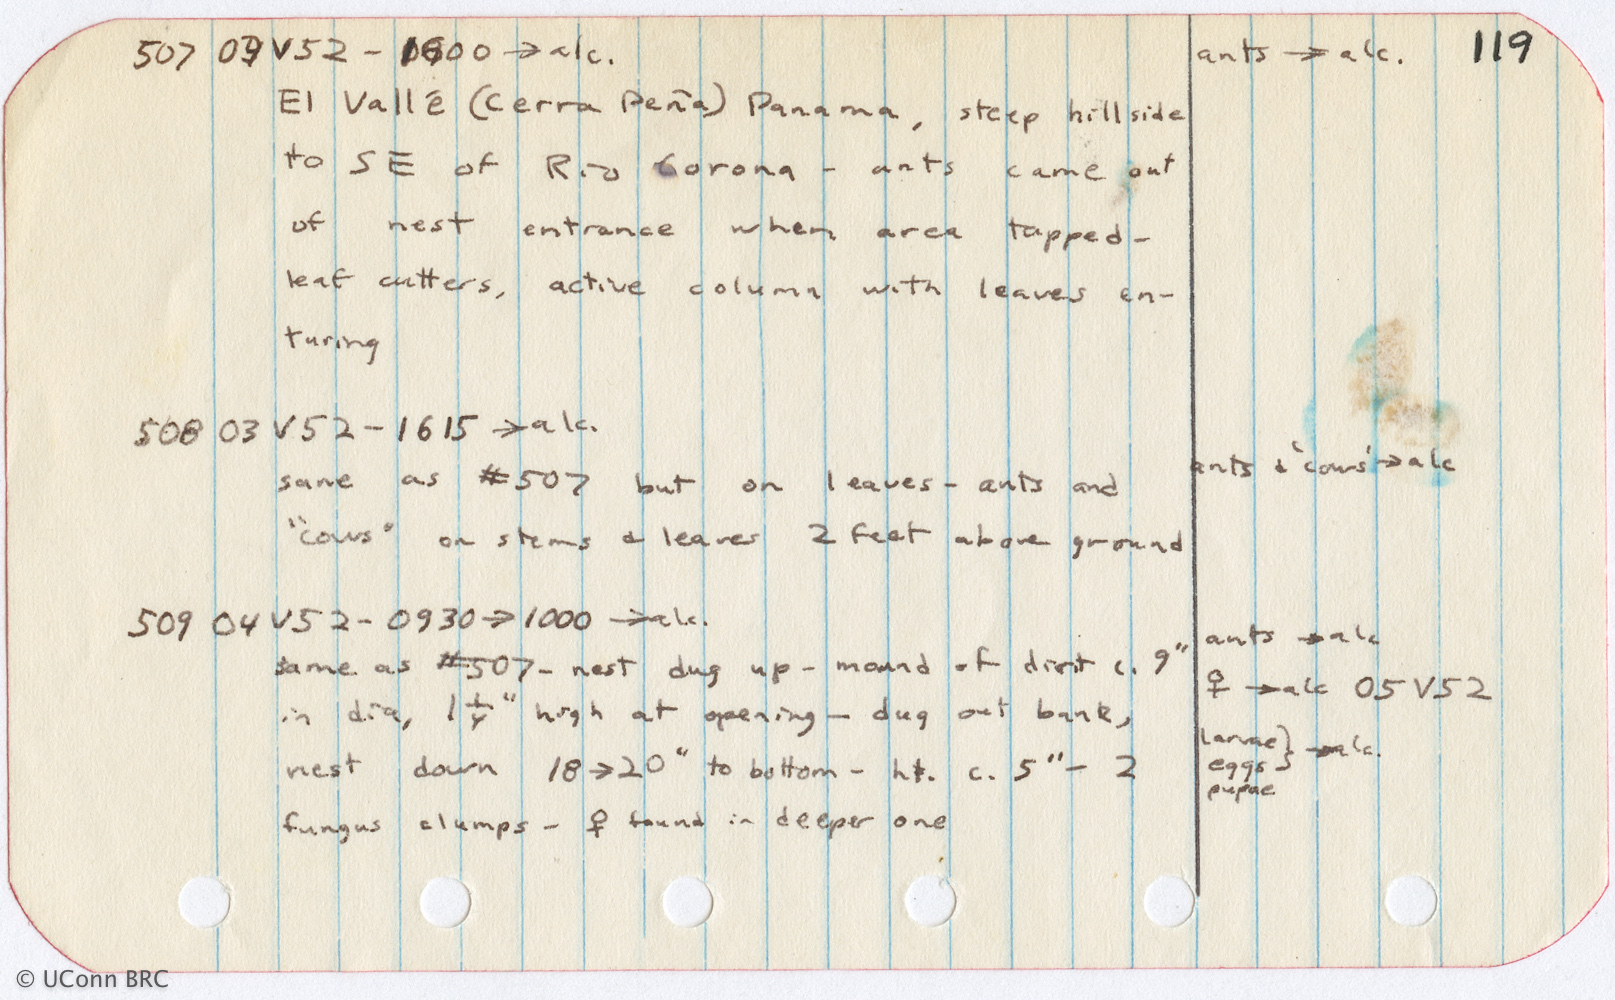 119
507 03 V 52 - 1600 → alc.
ants → alc.
El Vallé (Cerra Peña) Panama, steep hillside
to SE of Rio Corona - ants came out
of nest entrance when area tapped-
leaf cutters, active column with leaves en-
turing
508 03 V 52 - 1615 → alc.
same as #507 but on leaves - ants and
ants & "cows" → alc
"cows" on stems & leaves 2 feet above ground
509 04 V 52 - 0930 → 1000 → alc.
ants → alc
same as #507 - nest dug up - mound of dirit c. 9"
♀ → alc 05 V 52
in dia, 1 1/4" high at opening - dug out bank,
larvae} → alc.
eggs}
pupae
nest down 18 → 20" to bottom - ht. c. 5" - 2
fungus clumps - ♀ found in deeper one
© UConn BRC